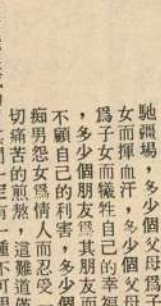 馳疆場，多少個父母爲
女而揮血汗，多少個父母
爲子女而犧牲自己的幸福
，多少個朋友爲其朋友而
不顧自己的利害，多少個
痴男怨女爲情人而忍受一
切痛苦的煎熬，這難道僅
一定有一種不可